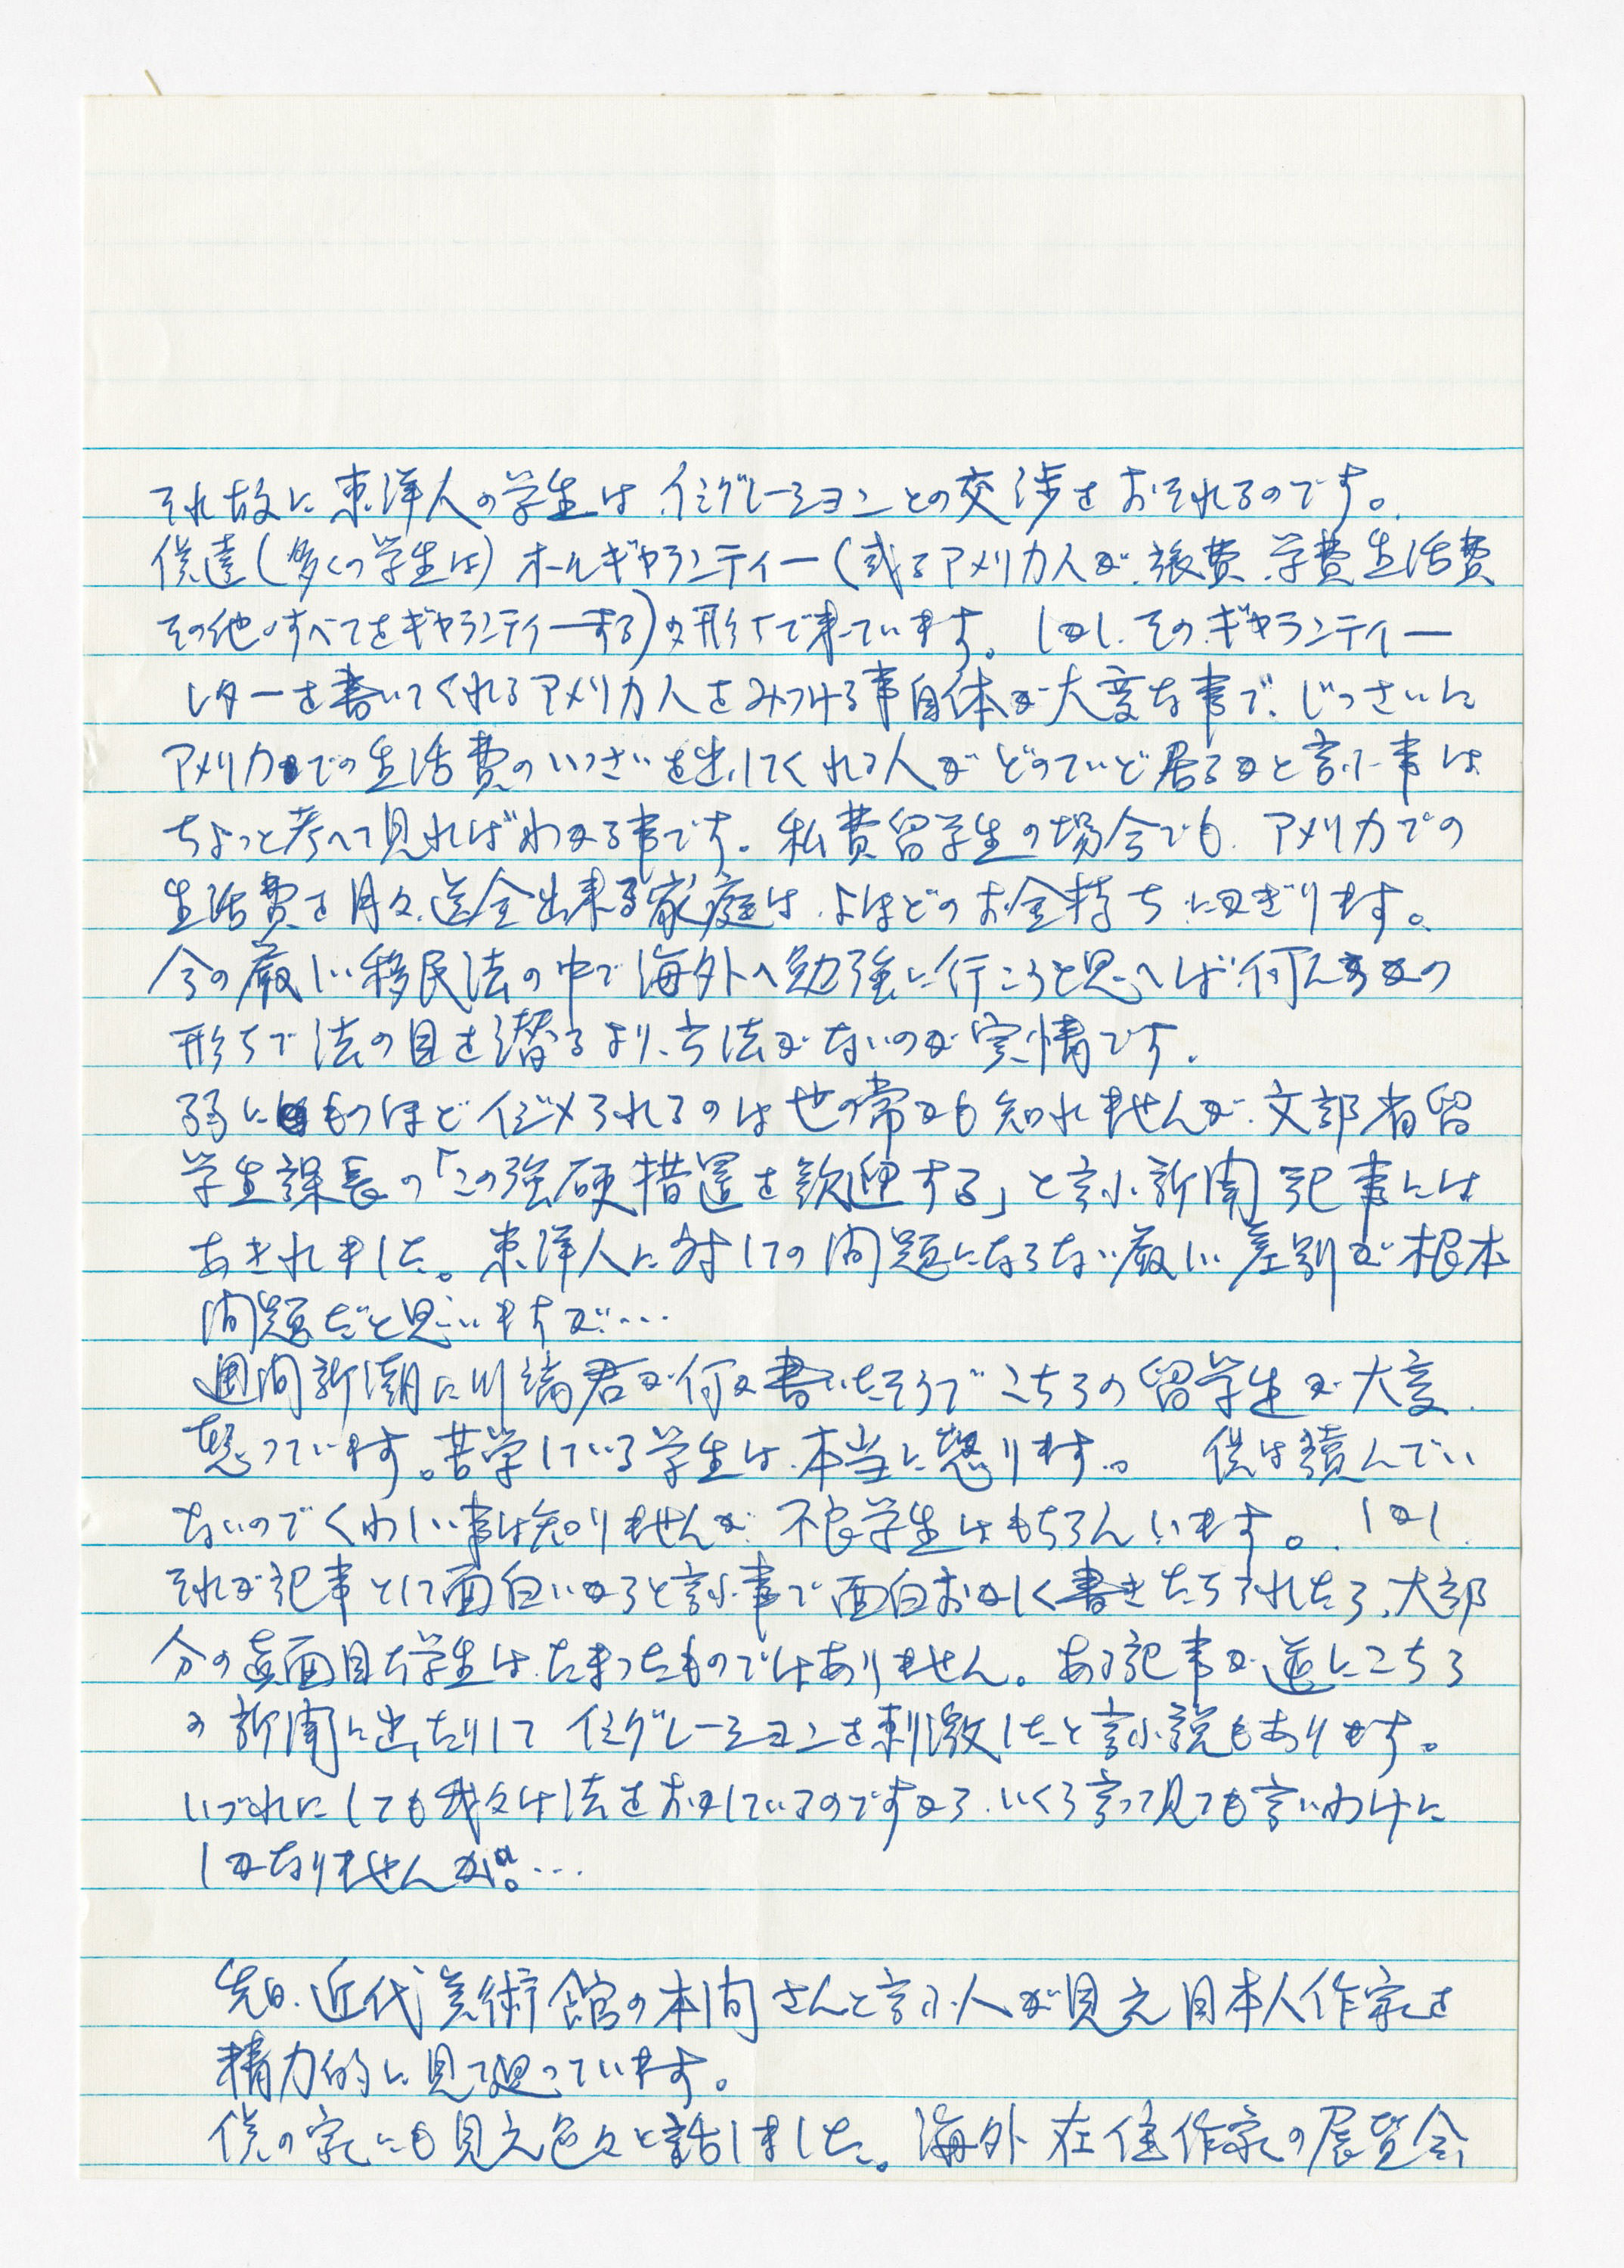 それ故に東洋人の学生はイミグレーションとの交渉をおそれるのです。
僕達(多くの学生は)オールギャランティー(或るアメリカ人が、旅費、学費生活費
その他すべてをギャランティーする)の形ちで来ています。しかし、そのギャランティー
レターを書いてくれるアメリカ人をみつける事自体が大変な事で、じっさいに
アメリカでの生活費のいっさいを出してくれる人がどのていど居るかと言ふ事は
ちょっと考へて見ればわかる事です。私費留学生の場合でも、アメリカでの
生活費を月々、送金出来る家庭は、よほどのお金持ちにかぎります。
今の厳しい移民法の中で海外へ勉強に行こうと思へば何んらかの
形ちで法の目を潜るより、方法がないのが実情です。
弱いものほどイジメられるのは世の常かも知れませんが、文部省留
学生課長の「この強硬措置を歓迎する」と言ふ新聞記事には
あきれました。東洋人に対しての問題にならない厳しい差別が根本
問題だと思いますが…
週間新潮に川端君が何か書いたそうでこちらの留学生が大変
怒っています。苦学している学生は、本当に怒ります。 僕は読んでい
ないのでくわしい事は知りませんが、不良学生はもちろんいます。しかし、
それが記事として面白いからと言ふ事で面白おかしく書きたてられたら、大部
分の真面目な学生は、たまったものではありません。ある記事が逆にこちら
の新聞に出たりして イミグレーションを刺激したと言ふ説もあります。
いづれにしても我々は法をおかしているのですから、いくら言って見ても言いわけに
しかなりませんが。…
先日、近代美術館の本間さんと言ふ人が見え日本人作家を
精力的に見て廻っています。
僕の家にも見え色々と話しました。海外在住作家の展覧会